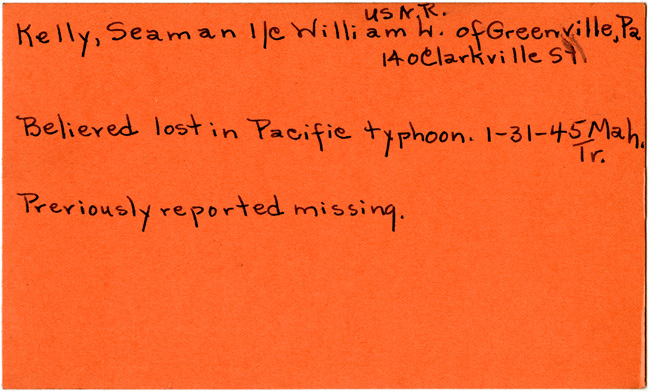 USN.R.
Kelly, Seaman 1/c William W. of Greenville, Pa
140 Clarkville St
Believed lost in Pacific typhoon. 1-31-45 Mah.
Tr.
Previously reported missing.